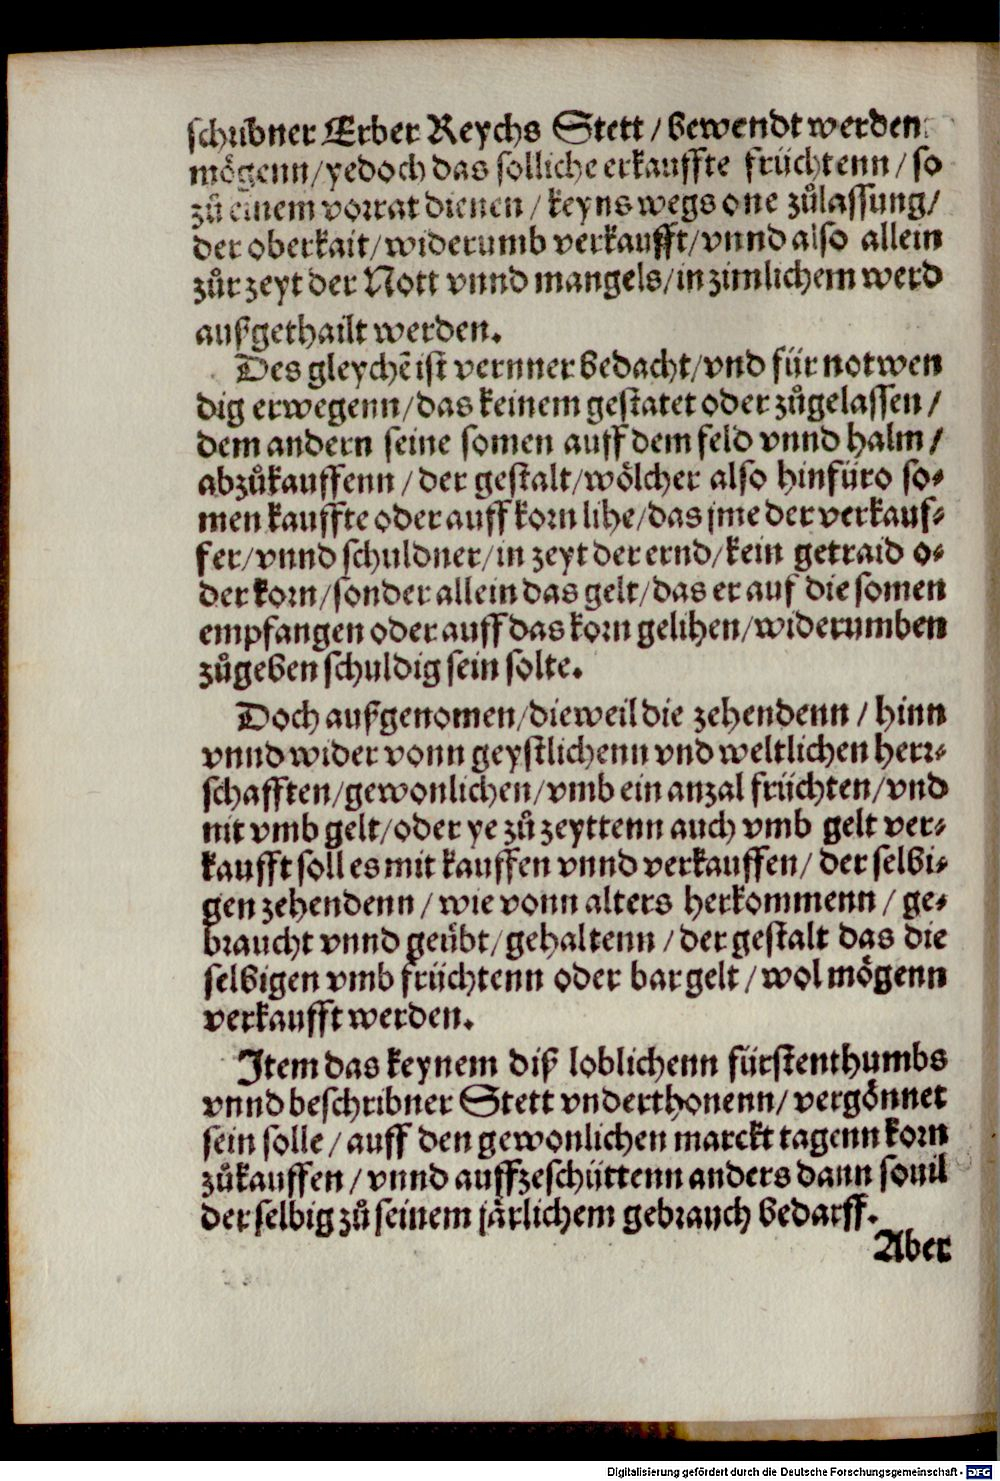 schribner Erber Reychs Stett / bewendt werden
mögenn / yedoch das solliche erkauffte früchtenn / so
zů einem vorrat dienen / keyns wegs one zůlassung /
der oberkait / widerumb verkaufft / vnnd also allein
zůr zeyt der Nott vnnd mangels / in zimlichem werd
außgethailt werden.
Des gleychē ist vernner bedacht / vnd für notwen
dig erwegenn / das keinem gestatet oder zůgelassen /
dem andern seine somen auff dem feld vnnd halm /
abzůkauffenn / der gestalt / wölcher also hinfüro so⸗
men kauffte oder auff korn lihe / das jme der verkauf⸗
fer / vnnd schuldner / in zeyt der ernd / kein getraid o⸗
der korn / sonder allein das gelt / das er auf die somen
empfangen oder auff das korn gelihen / widerumben
zůgeben schuldig sein solte.
Doch außgenomen / dieweil die zehendenn / hinn
vnnd wider vonn geystlichenn vnd weltlichen herr⸗
schafften / gewonlichen / vmb ein anzal früchten / vnd
nit vmb gelt / oder ye zů zeyttenn auch vmb gelt ver⸗
kaufft soll es mit kauffen vnnd verkauffen / der selbi⸗
gen zehendenn / wie vonn alters herkommenn / ge⸗
braucht vnnd geübt / gehaltenn / der gestalt das die
selbigen vmb früchtenn oder bar gelt / wol mögenn
verkaufft werden.
Item das keynem diß loblichenn fürstenthumbs
vnnd beschribner Stett vnderthonenn / vergönnet
sein solle / auff den gewonlichen marckt tagenn korn
zůkauffen / vnnd auffzeschüttenn anders dann souil
der selbig zů seinem järlichem gebrauch bedarff.
Aber
Digitalisierung gefördert durch die Deutsche Forschungsgemeinschaft - DFG